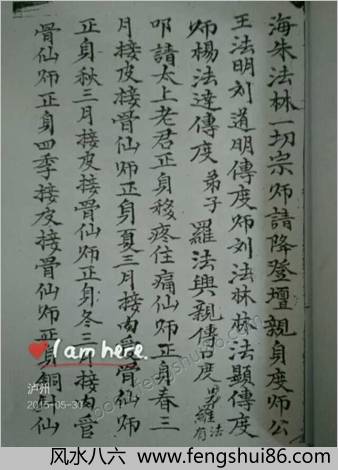 海朱法林一切宗师請降登壇親身度师公
王法明刘道明傳度师刘法林林法顯傳度
师楊法達傳度 弟子 羅法興親傳口度 弟羅法有
叩請太上老君正身移疼住痛仙师正身春三
月接皮接骨仙师正身夏三月接肉骨仙师
正身秋三月接皮接骨仙师正身冬三月接肉
骨仙师正身四季接皮接骨仙师正身銅仙
I am here.
泸州
2015-05-30
www.fengshui86.com
风水八六 www.fengshui86.com